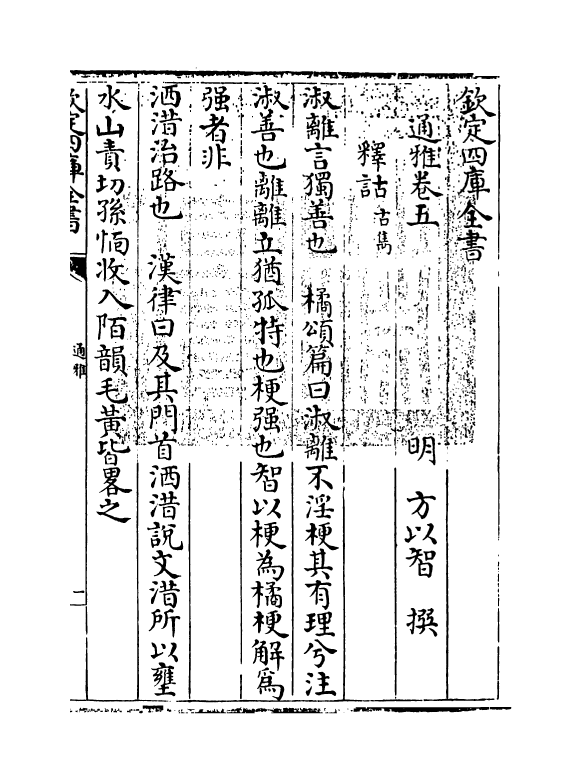 欽定四庫全書
通雅卷五
明 方以智 撰
釋詁 古雋
淑離言獨善也 橘頌篇曰淑離不淫梗其有理兮注
淑善也離離立猶孤特也梗强也智以梗為橘梗解為
强者非
洒㳻治路也 漢律曰及其門首洒㳻說文㳻所以壅
水山責切孫愐收入陌韻毛黃皆畧之
欽定四庫全書
通雅
二